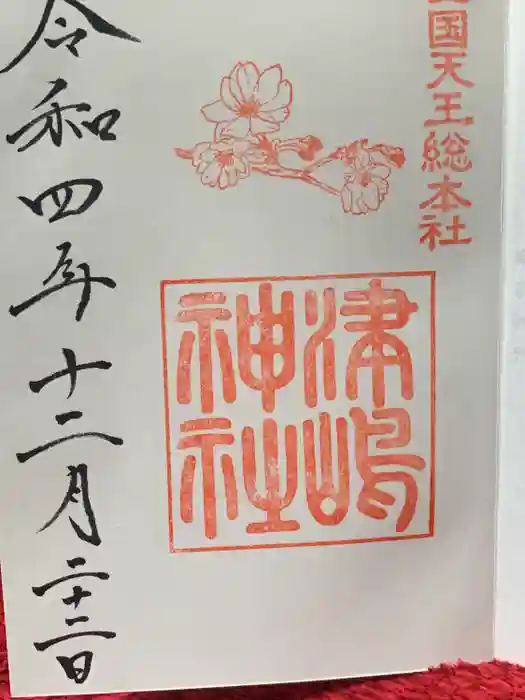 国天王総本社
津嶋
神社
令和四年十二月二十二日